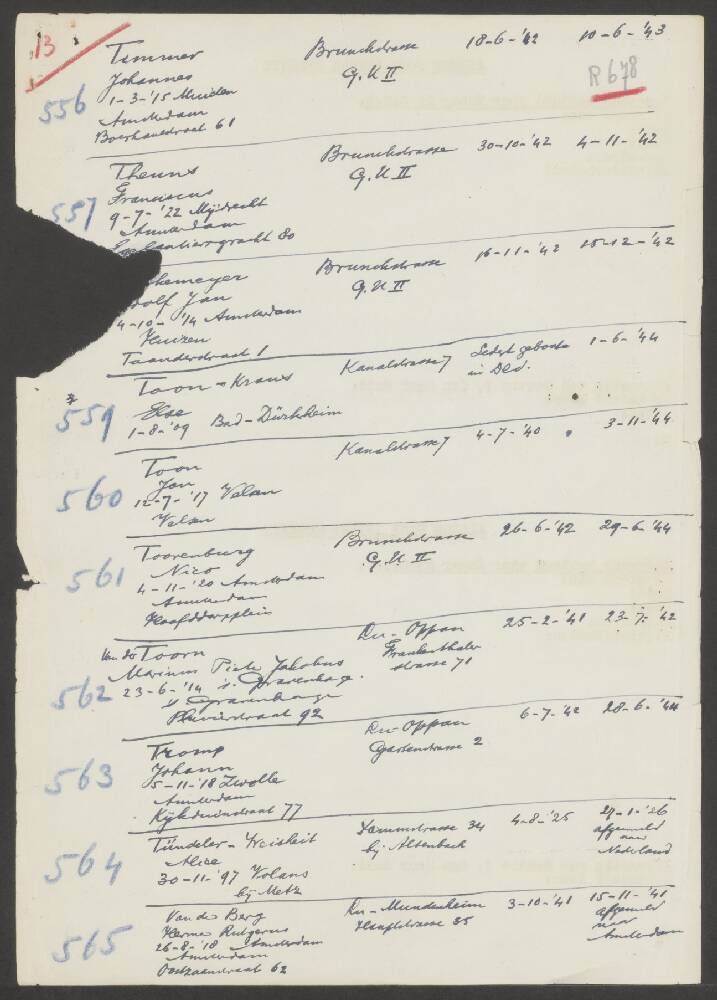 13
R678
556
Timmer Brunckstrasse 18-6-'42 10-6-'43
Johannes G.U II
1-3-'15 Muiden
Amsterdam
Boerhavestraat 61
557
Theuns Brunckstrasse 30-10-'42 4-11-'42
Franciscus G.U II
9-7-'22 Mijdrecht
Amsterdam
gracht 80
hemeyer Brunckstrasse 16-11-'42 15-12-'42
dolf Jan G.U II
4-10-'14 Amsterdam
Huizen
Taanderstraat 1
559
Toon-Kraus Kanalstrasse 7 1-6-'44
Else in Dld.
1-8-'09 Bad-Dürkheim
560
Toon Kanalstrasse 7 4-7-'40 3-11-'44
Jan
12-7-'17 Velsen
Velsen
561
Toorenburg Brunckstrasse 26-6-'42 29-6-'44
Nico G.U II
4-11-'20 Amsterdam
Amsterdam
Hoofddorpplein
562
Van der Toorn Lu-Oppau 25-2-'41 23-7-'42
Marinus Piete Jakobus Frankenthaler
23-6-'14 's-Gravenhage strasse 71
's Gravenhage
Pluvierstraat 92
563
Tromp Lu-Oppau 6-7-'42 28-6-'44
Johann Gartenstrasse 2
5-11-'18 Zwolle
Amsterdam
Kijkduinstraat 77
564
Tündeler- 34 4-8-'25 27-1-'26
Alice bij Altenbach afgemeld
30-11-'97 naar
bij Metz Nederland
565
Van de Berg Lu-Mundenheim 3-10-'41 15-11-'41
Herma Rutgerus Hauptstrasse 35 afgemeld
26-8-'18 Amsterdam naar
Amsterdam Amsterdam
Oostzaanstraat 62